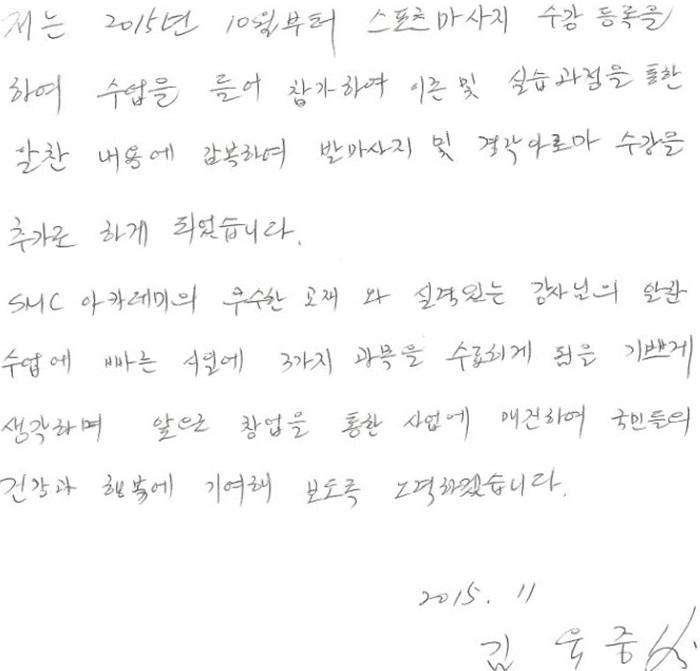 저는 2015년 10월부터 스포츠마사지 수강 등록을
하여 수업을 들어 참가하여 이론 및 실습과정을 통한
알찬 내용에 감복하여 발마사지 및 경락아로마 수강을
추가로 하게 되었습니다.
SMC 아카데미의 우수한 교재 와 실력있는 강사님의 알찬
수업에 빠른 시일에 3가지 과목을 수료하게 됨을 기쁘게
생각하며 앞으로 창업을 통한 사업에 매진하여 국민들의
건강과 행복에 기여해 보도록 노력하겠습니다.
2015. 11
김